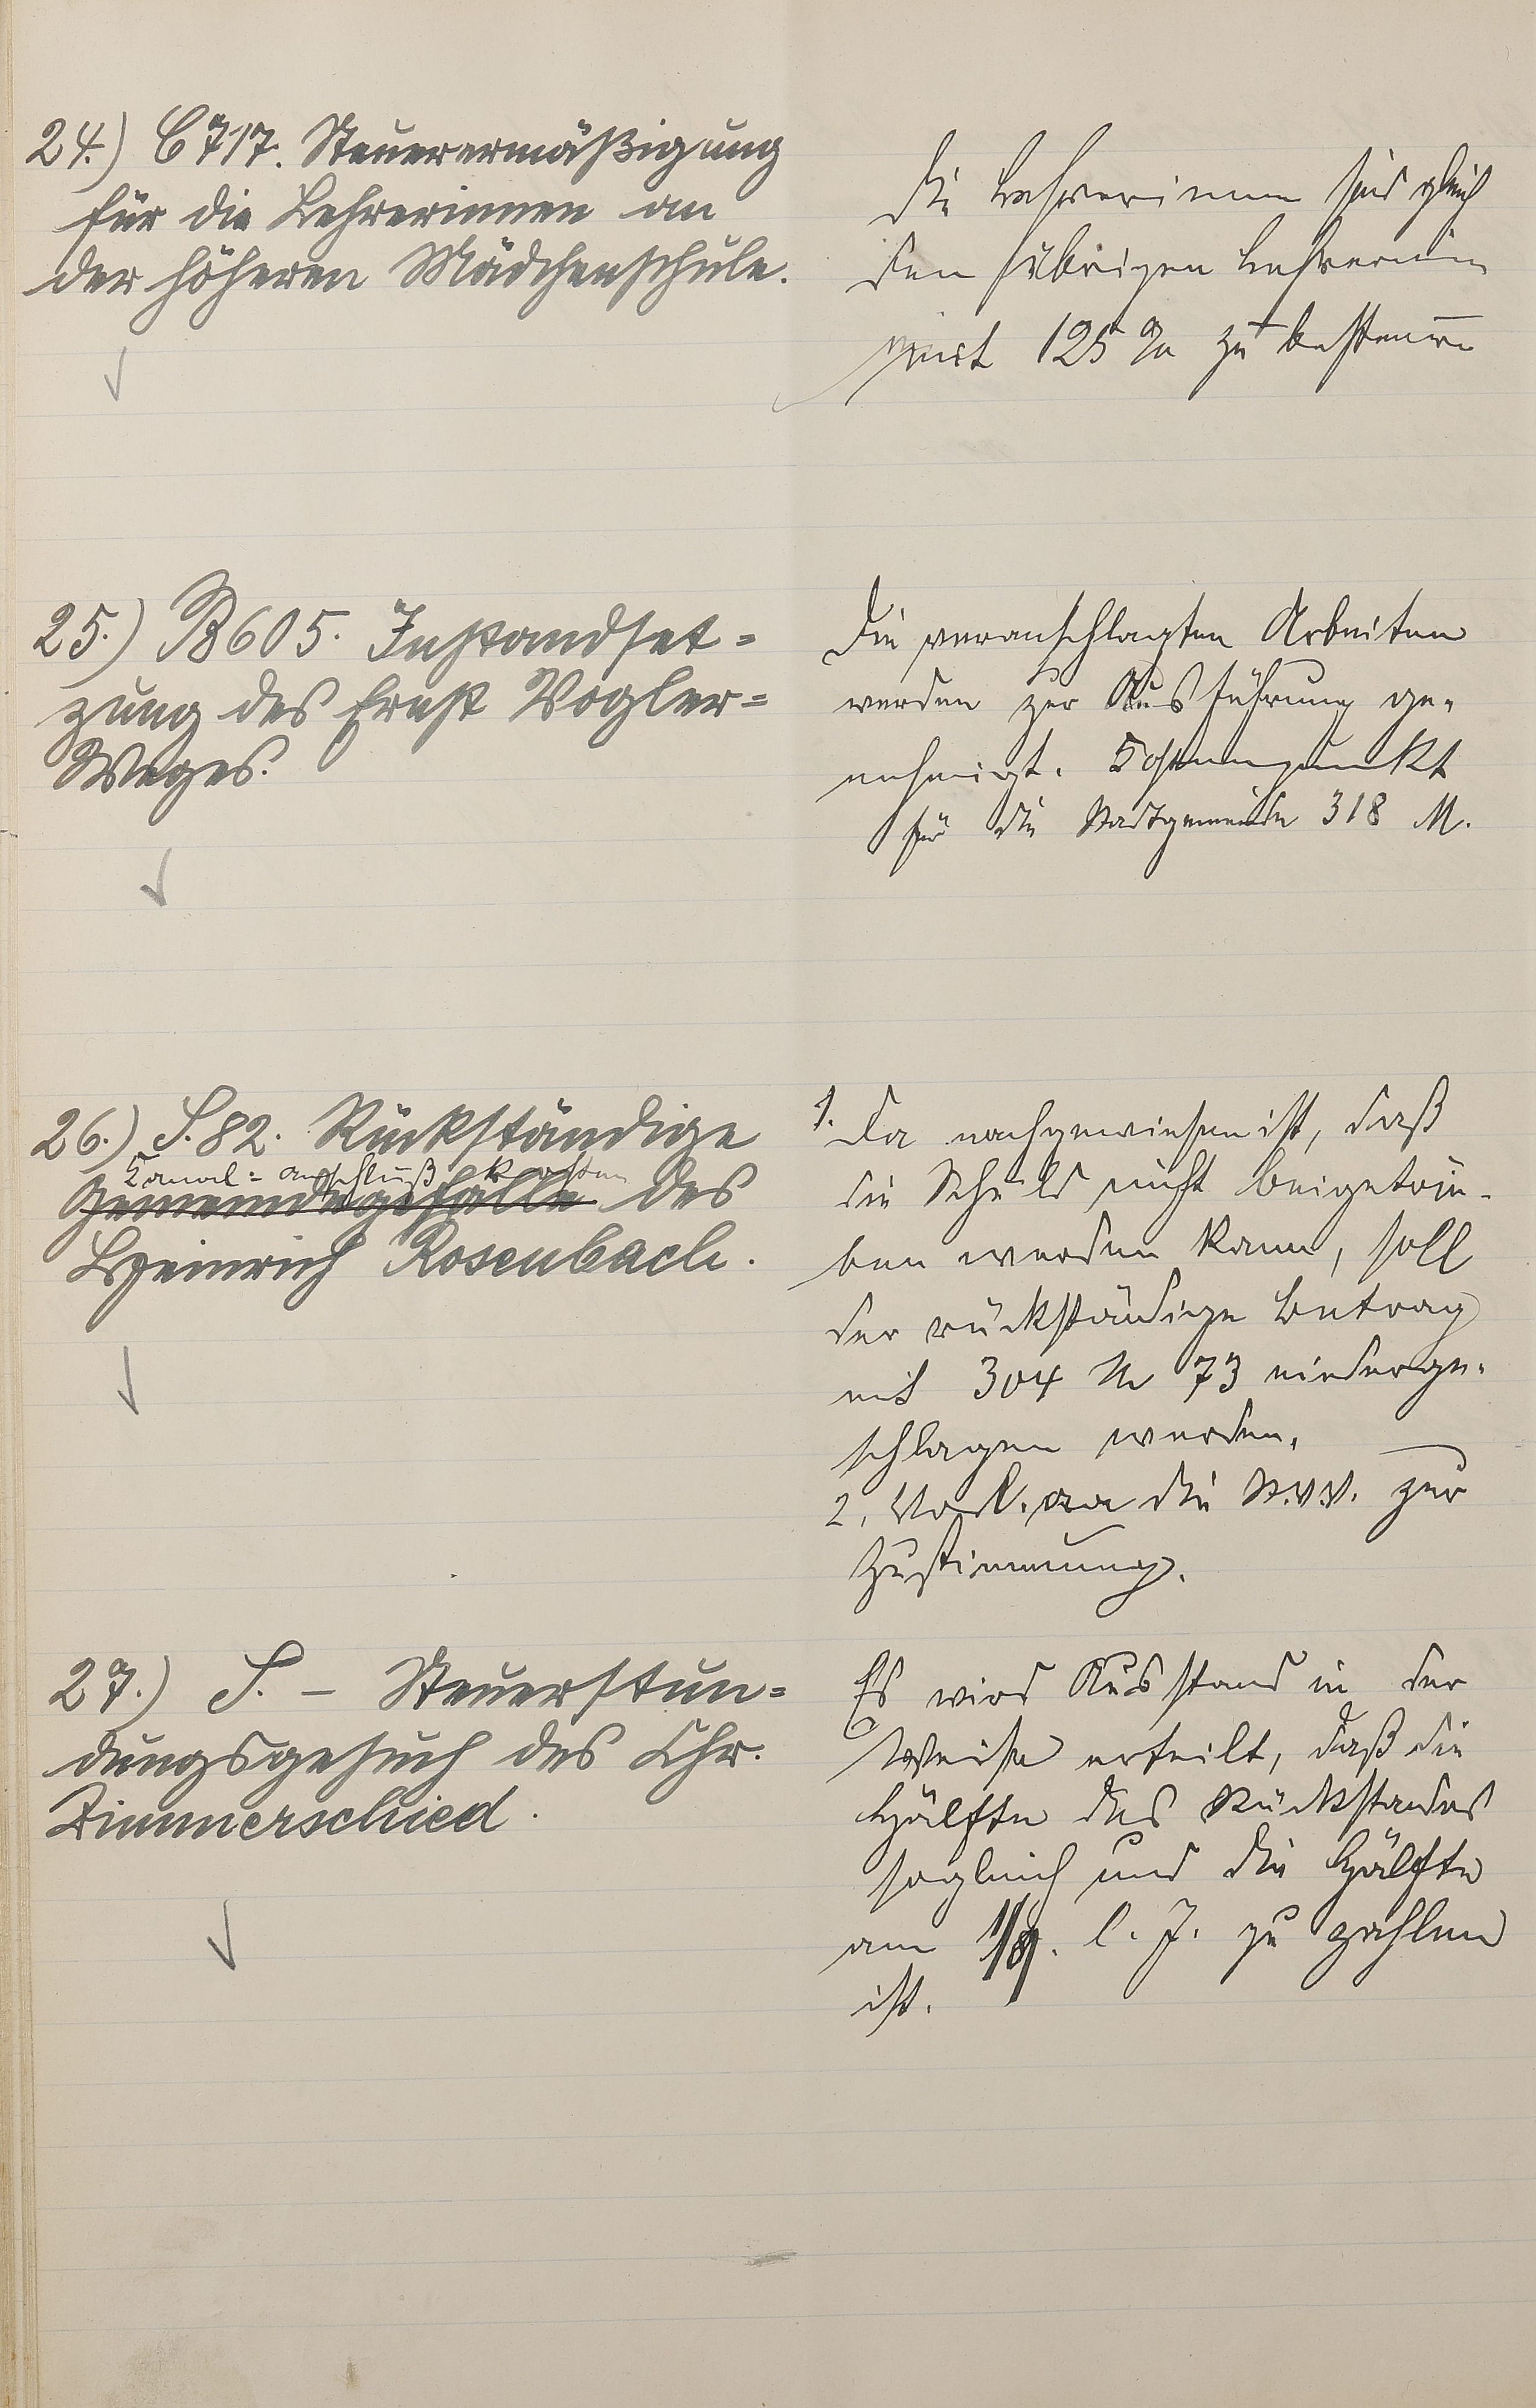 24.) C 717. Steuerermäßigung
für die Lehrerinnen an
der höheren Mädchenschule.
Die Lehrerinnen sind gleich
den übrigen Lehrerinn
mit 125 % zu besteuern
25.) B 605. Instandset=
zung des Ernst Vogler=
Weges.
Die veranschlagten Arbeiten
werden zur Ausführung ge-
nehmigt. Kostenpunkt
für die Stadtgemeinde 318 M.
26.) S. 82. Rückständige
Kanal=anschluß kosten
Gemeindegefälle des
Heinrich Rosenbach.
1. Da nachgewiesen ist, daß
die Schuld nicht beigetrie-
ben werden kann, soll
der rückständige Betrag
mit 304 M 73 niederge-
schlagen werden.
2. Vorl. an die St.V.V. zur
Zustimmung.
27.) S. – Steuerstun=
dungsgesuch des Chr.
Zimmerschied.
Es wird Ausstand in der
Weise erteilt, daß die
Hälfte des Rückstandes
sogleich und die Hälfte
am l. J. zu zahlen
ist.